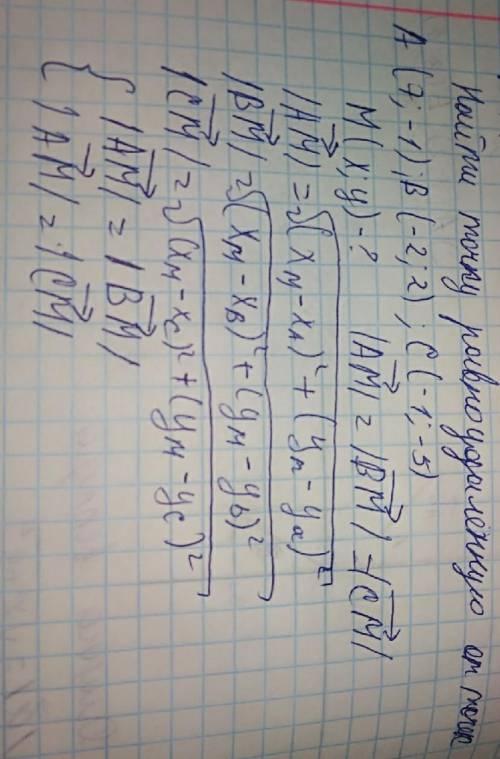 Найти точку равноудаленную от точек
A (7; -1); B (-2; 2); C (-1; -5)
M(x; y) - ? |AM| = |BM| = |CM|
|AM| = √(xM - xA)² + (yM - ya)²
|BM| = √(xM - xB)² + (yM - yb)²
|CM| = √(xM - xc)² + (yM - yc)²
{ |AM| = |BM|
|AM| = |CM|